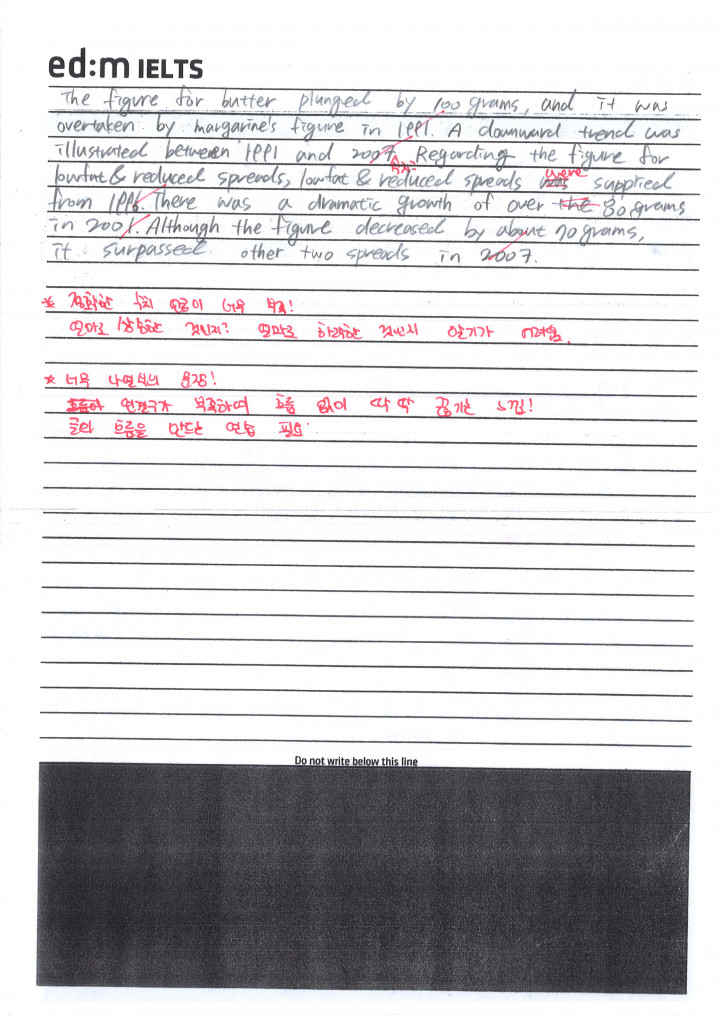 ed:m IELTS
The figure for butter plunged by 100 grams, and it was
overtaken by margarine's figure in 1991. A downward trend was
illustrated between 1991 and 2007. Regarding the figure for
lowfat & reduced spreads, lowfat & reduced spreads was were supplied
from 1996. There was a dramatic growth of over the 80 grams
in 2001. Although the figure decreased by about 10 grams,
it surpassed other two spreads in 2007.
* 정확한 수치 언급이 너무 부족!
얼마로 상승한 것인지? 얼마로 하락한 것인지 알기가 어려움.
* 너무 나열식의 문장!
연결구가 부족하여 흐름 없이 딱딱 끊기는 느낌!
글의 흐름을 만드는 연습 필요.
Do not write below this line